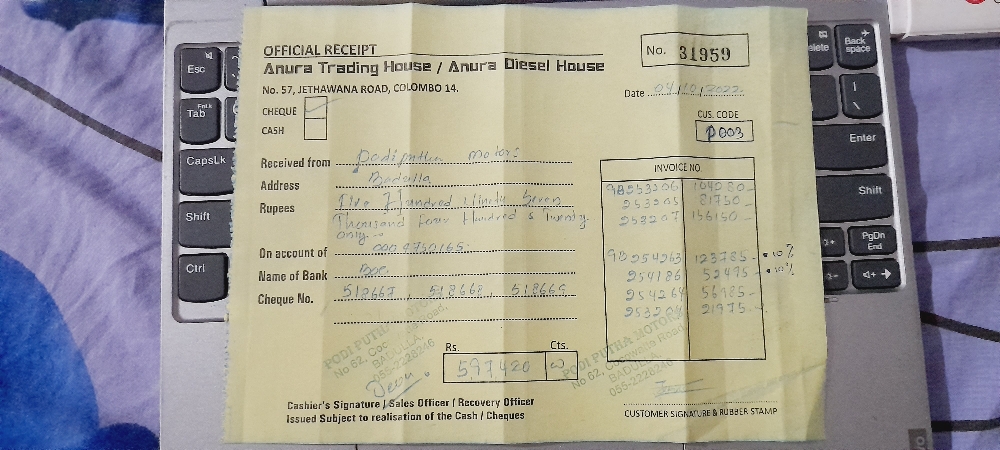 OFFICIAL RECEIPT
Anura Trading House / Anura Diesel House
No. 57, JETHAWANA ROAD, COLOMBO 14.
No. 31959
Date 04/10/2022
CHEQUE
CASH
CUS. CODE
P003
Received from Podiputha motors
Address Badulla
Rupees Five Hundred Ninty Seven
Thousand four Hundred & Twenty
only
On account of 0009750165
Name of Bank Boc
Cheque No. 518667, 518668, 518669
INVOICE NO.
98253206 104280
253205 81750
253207 156150
98254263 123785 10%
254186 52495 10%
254264 56985
21975
Rs. Cts.
597420
PODI PUTHA
No 62,
BADULLA
055-2228246
PODI PUTHA MOTORS
No 62, Cocowatta Road
BADULLA
055-2228246
Cashier's Signature / Sales Officer / Recovery Officer
Issued Subject to realisation of the Cash / Cheques
CUSTOMER SIGNATURE & RUBBER STAMP
Esc
Tab
CapsLk
Shift
Ctrl
elete
Back
space
Enter
Shift
PgDn
End